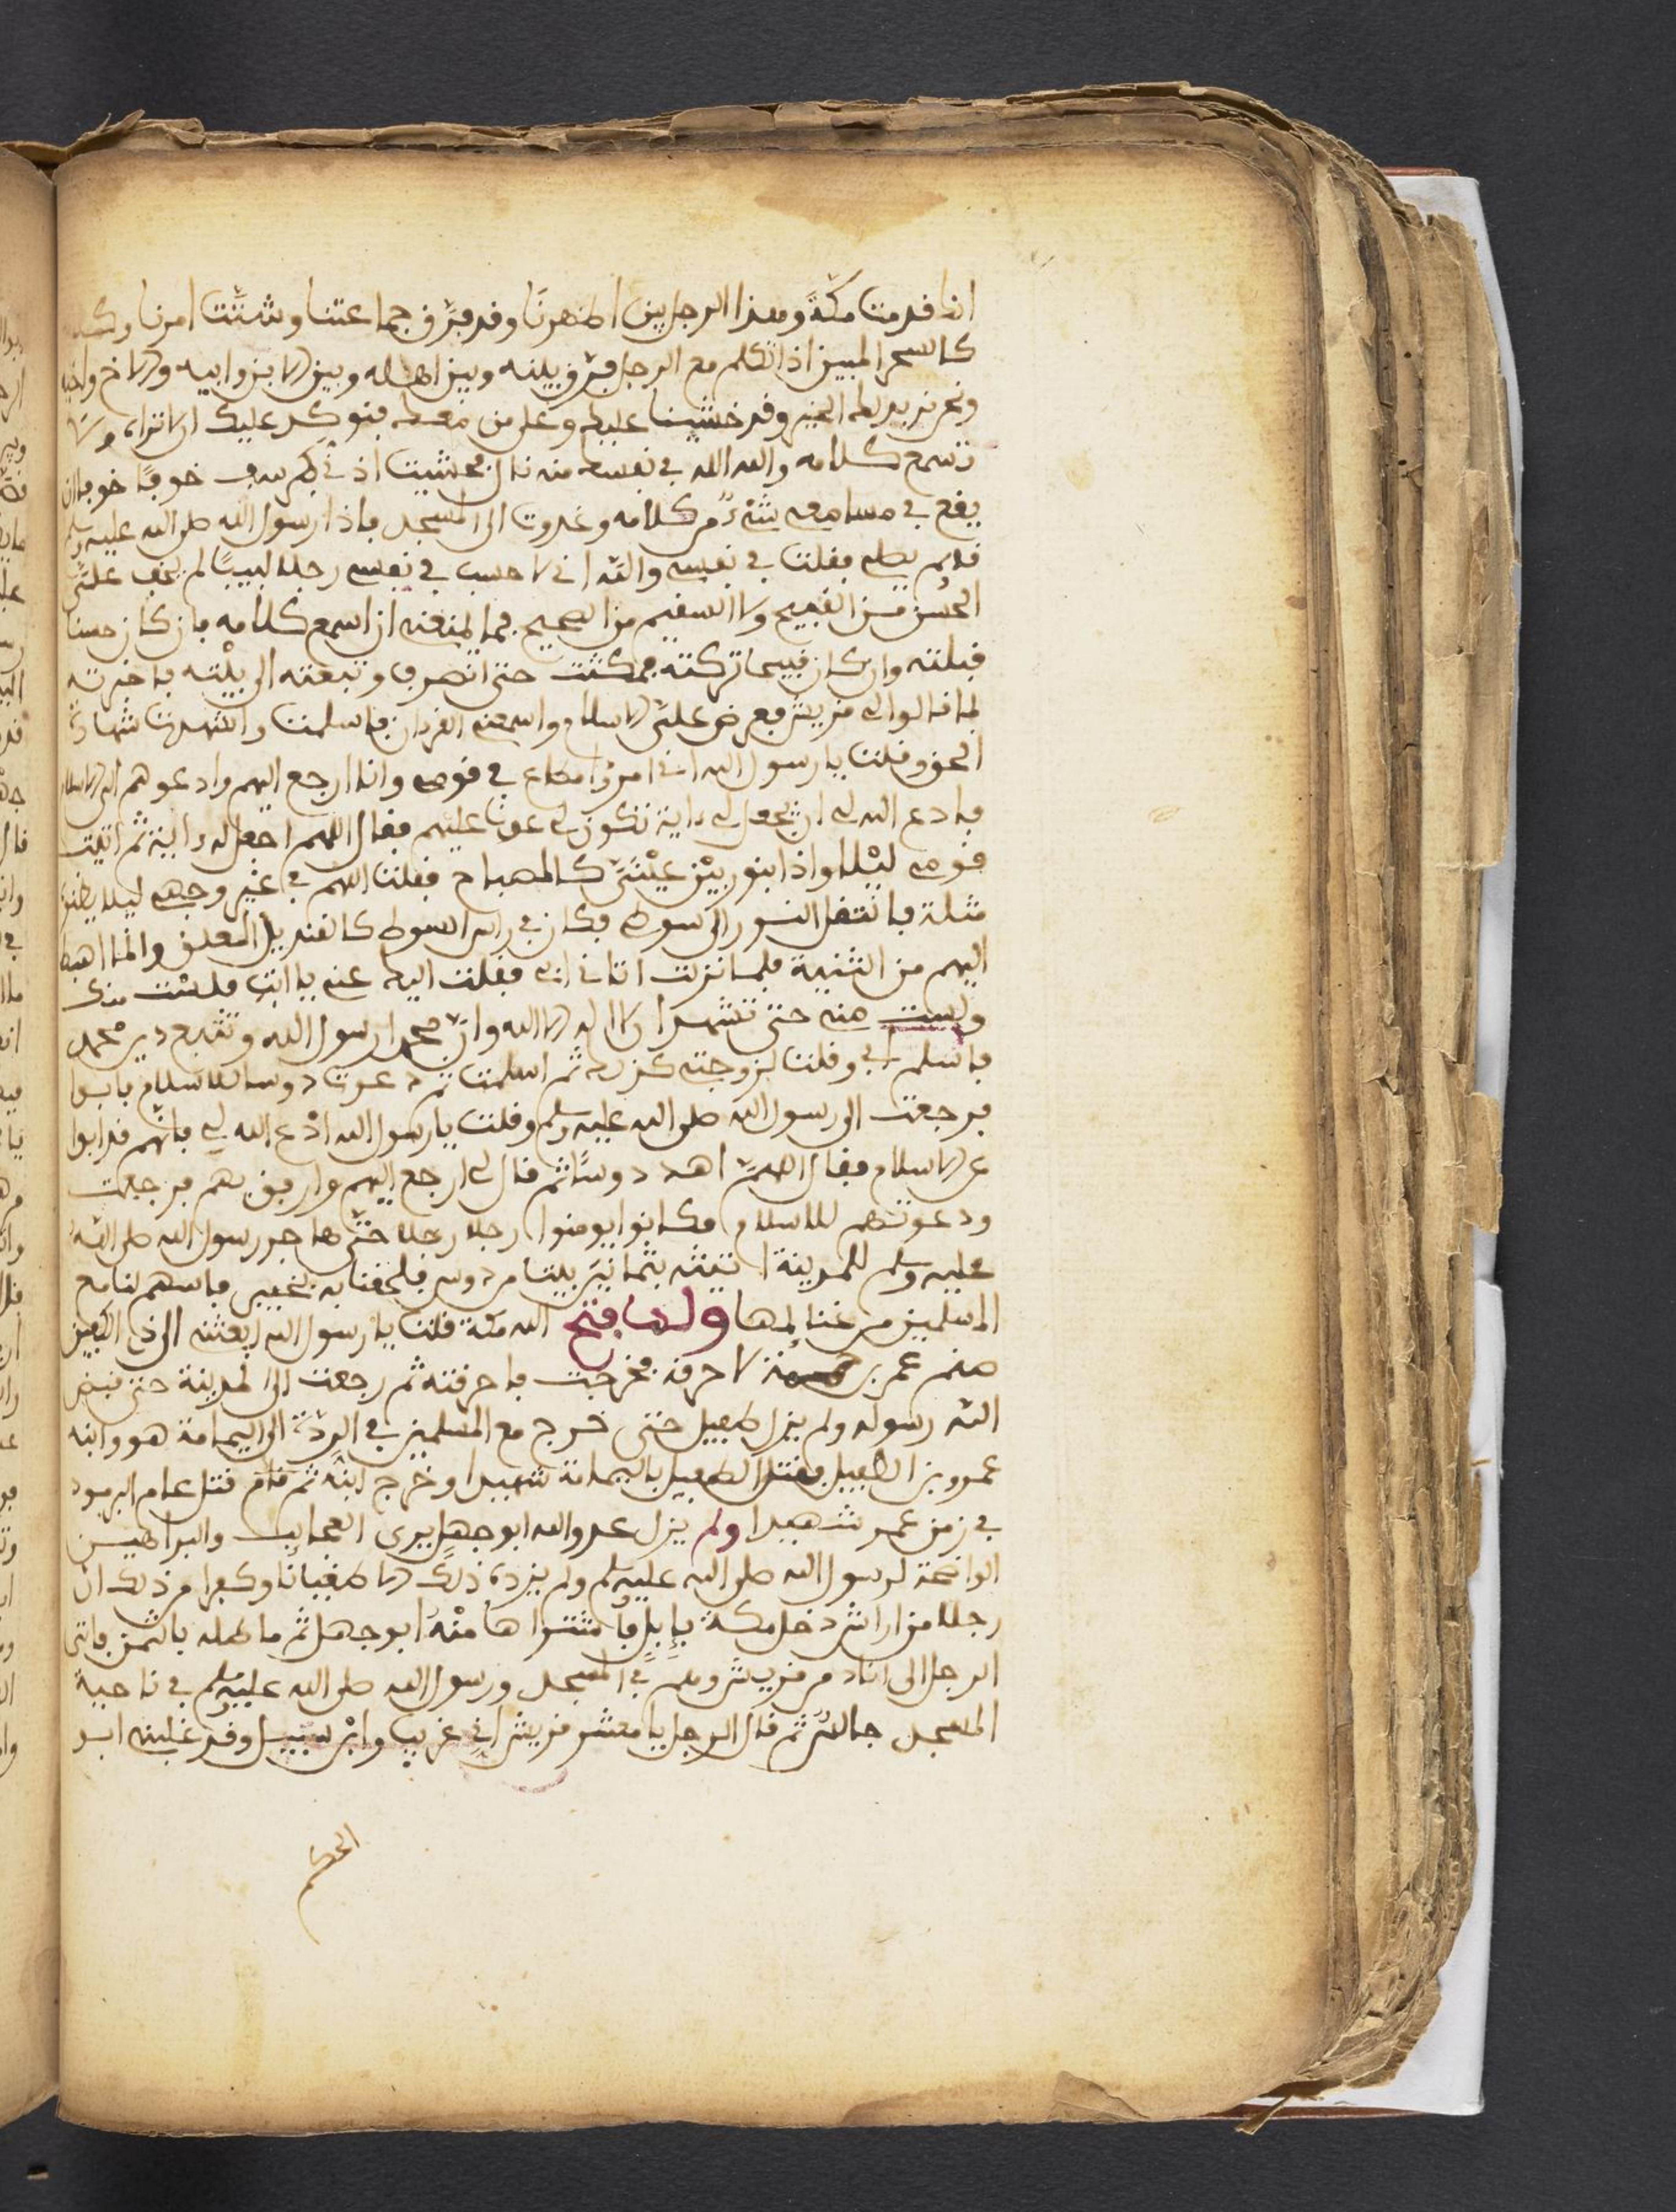 انك قدمت مكة وهذا الرجل بين اظهرنا وقد فرّق جماعتنا وشتّت امرنا وكله
كالسحر المبين اذا تكلم مع الرجل فرّق بينه وبين اهله وبين الابن وابيه والاخ واخيه
ونحن نريد لك الخير وقد خشينا عليك وعلى من معك فنوكد عليك ان لا تراه ولا
تسمع كلامه والله الله في نفسك منه قال فحشيت اذني كرسف خوفا خوفا ان
يقع في مسامعي شيءٌ من كلامه وغدوت الى المسجد فاذا رسول الله صلى الله عليه وسلم
قائم يصلي فقلت في نفسي والله اني لاحسب في نفسي رجلا لبيبًا لم يخف عليّ
الحسن من القبيح ولا السقيم من الصحيح فما يمنعني ان اسمع كلامه فان كان حسنا
قبلته وان كان قبيحا تركته فمكثت حتى انصرف وتبعته الى بيْته فاخبرته
بما قالوا لي قريش فعرض عليّ الاسلام واسمعني القرءان فاسلمت واشهدت شهادة
الحق وقلت يا رسول الله اني امرؤ مطاع في قومي وانا ارجع اليهم وادعوهم الى الاسلام
فادع الله لي ان يجعل لي ءاية تكون لي عونا عليهم فقال اللهم اجعل له ءاية ثم اتيت
قومي ليْلا واذا بنور بيْن عيْنَيّ كالمصباح فقلت اللهم في غير وجهي ليلا يظنوا
مثلة فانتقل النور الى سوطي فكان في راس السوط كالقنديل المعلق وانا اهبط
اليهم من الثنية فلما نزلت اتاني ابي فقلت اليك عني يا ابت فلست منك
ولست مني حتى تشهد ان لا اله الا الله وانّ محمدا رسول الله وتتبع دين محمد
فاسلم ابي وقلت لزوجتي كذلك ثم اسلمت ثم دعوت دوسا للاسلام فابوا
فرجعت الى رسول الله صلى الله عليه وسلم وقلت يا رسول الله ادْع الله لي فانهم قد ابوا
عن الاسلام فقال اللهمّ اهد دوسًا ثم قال لي ارجع اليهم وارفق بهم فرجعت
ودعوتهم للاسلام فكانوا يومنوا رجلا رجلا حتّى هاجر رسول الله صلى الله
عليه وسلم للمدينة اتيته بثمانين بيتا من دوس فلحقنا به بخيبر فاسهم لنا مع
المسلمين من غنائمها ولما فتح الله مكة قلت يا رسول الله ابعثني الى ذي الكفين
صنم عمرو بن حممة لاحرقه فخرجت فاحرقته ثم رجعت الى المدينة حتى قبض
الله رسوله ولم يزل طفيل حتى خرج مع المسلمين في الردّة الى اليمامة هو وابنه
عمرو بن الطفيل فقتل الطفيل باليمامة شهيدا وخرج ابنه ثم قام قتل عام اليرموك
في زمن عمر شهيدا ولم يزل عدو الله ابو جهل يرى العجايب والبراهيـن
الواضحة لرسول الله صلى الله عليه وسلم ولم يزده ذلك الا طغيانًا وكفرا من ذلك ان
رجلا من اراش دخل مكة بإبلٍ فاشتراها منْه ابو جهل ثم ماطله بالثمن فاتى
الرجل الى اناد من قريش وهم في المسجد ورسول الله صلى الله عليه وسلم في ناحية
المسجد جالسٌ ثم قال الرجل يا معشر قريش اني غريب وابْن سبيل وقد غلبني ابو
الحكم